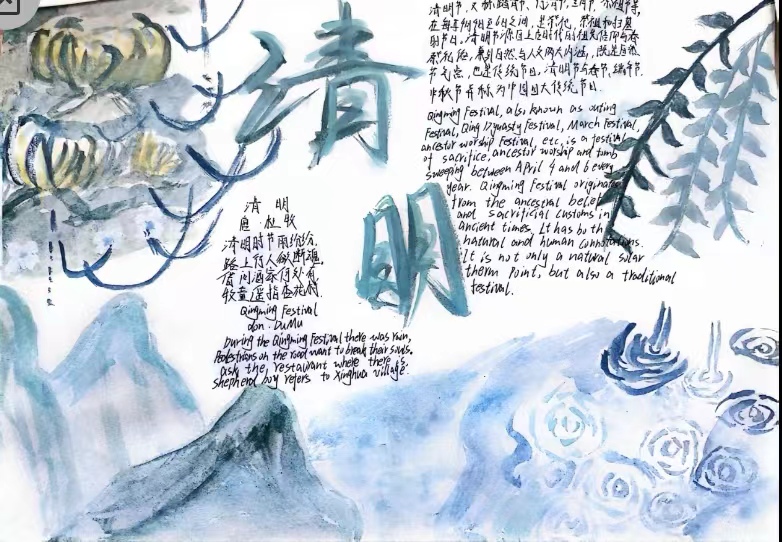 清
明
清明节,又称踏青节、
在每年4月4日至6日之间,是祭祀、祭祖和扫墓
的节日。清明节源自上古时代的祖先信仰与春
祭礼俗,兼具自然与人文两大内涵,既是自然
节气点,也是传统节日,清明节与春节、端午节、
中秋节并称为中国四大传统节日。
Qingming Festival, also known as outing
Festival, Qing Dynasty Festival, March Festival,
ancestor worship Festival, etc, is a festival
of sacrifice, ancestor worship and tomb
sweeping between April 4 and 6 every
year. Qingming Festival originates
from the ancestral belief
and sacrificial customs in
ancient times. It has both
natural and human connotations.
It is not only a natural solar
therm point, but also a traditional
festival.
清明
唐·杜牧
清明时节雨纷纷,
路上行人欲断魂。
借问酒家何处有,
牧童遥指杏花村。
Qingming Festival
don·DuMu
During the Qingming Festival there was rain,
Pedestrians on the road want to break their souls.
ask the, restaurant where there is.
shepherd boy refers to Xinghua village.